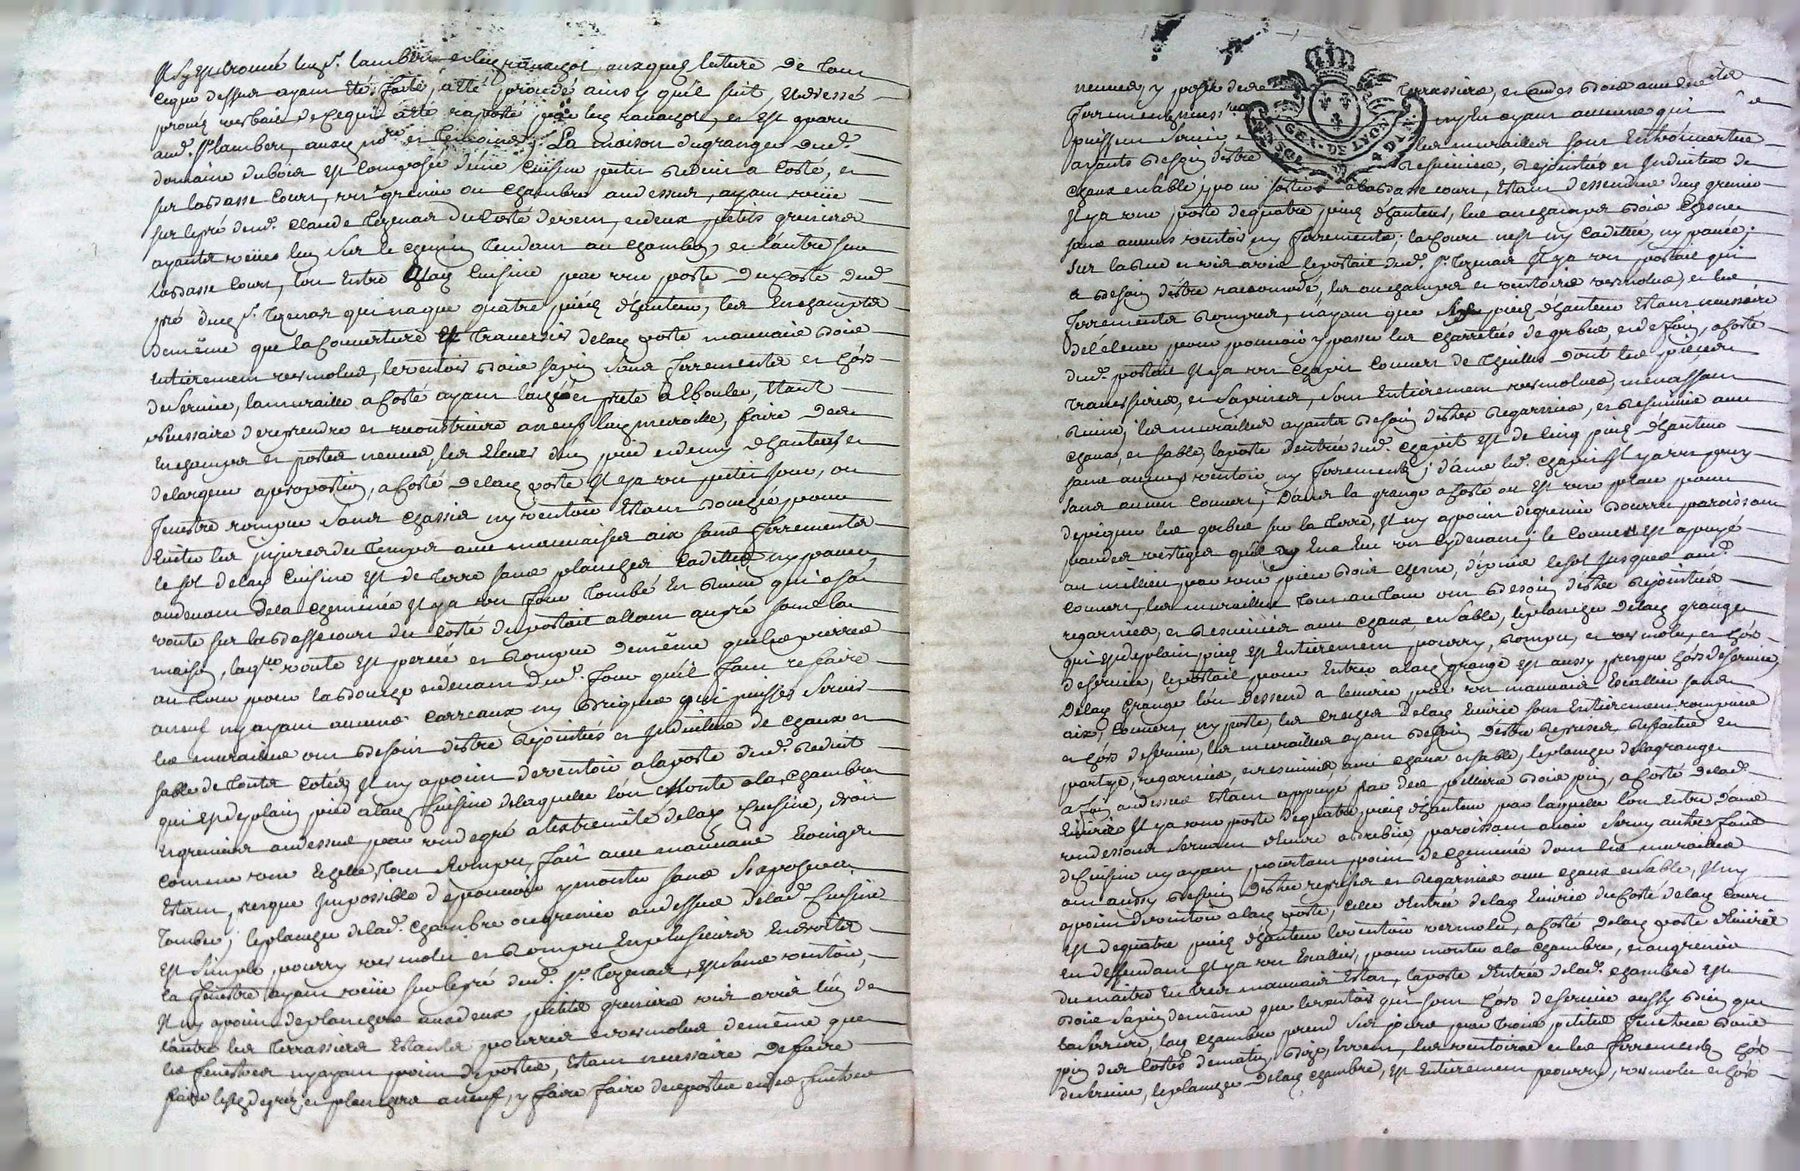 Il s'y est trouvé led. Sr. Lambert et led. ravaisot, auxquels lecture de tout
ce que dessus ayant été faite, a été procédé ainsy qu'il suit, et dressé
procès verbal de ce qui a été raporté par led. ravaisot, et est quaru
aud. Sr. lambert, aussy nre. et témoins; La maison du granger dud.
domaine du bois est composée d'une cuisine petit reduit a costé, et
sur la basse cour, un grenier ou chambre au dessus, ayant veüe
sur le pré dud. Claude Tezenas du costé de vent, et deux petits greniers
ayants veües l'un sur le chemin tendant au Chambon, et l'autre sur
la basse cour, l'on entre a lad. cuisine par une porte du costé dud.
pré dud. Sr. Tezenas qui n'a que quatre pieds d'hauteur, les enchampts
de même que la couverture et traversiz de lad. porte mauvais bois
entierement vermolus, le ventois bois sapin sans ferrements et hors
de service, la muraille a costé ayant laché et prete a Ebouler, étant
necessaire de reprendre et reconstruire a neuf lad. muraille, faire des
enchamps et portes neuves, les élever d'un pied et demy d'hauteur, et
de largeur a proportion, a costé de lad. porte il y a un petit jour, ou
fenestre rompue sans chassis ny ventois étant bouchée pour
éviter les injures du temps avec mauvaises aix sans ferrements
le sol de lad. cuisine est de terre sans plancher cadettes ny pavés,
au devant de la cheminée il y a un four tombé en ruine qui a sa
voute sur la basse cour du costé du portail allant au pré sous la
maison, laq.lle voute est percée et rompue de même que les pierres
au tour pour la bouche et devant dud. four qu'il faut refaire
a neuf n'y ayant aucuns carreaux ny briques qui puisses servir
les murailles ont besoin d'estre rejointées et induittes de chaux et
sable de toutes cotés, il n'y a point de ventois a la porte dud. reduit
qui est de plain pied a lad. cuisine de laquelle l'on monte a la chambre
et greniers au dessus par un degré a l'extremité de lad. cuisine, droit
comme une Echelle, tout rompu, fait avec mauvais
étant presque impossible de pouvoir y monter sans s'exposer a
tomber; le plancher de lad. chambre ou grenier au dessus de lad. cuisine
est simple, pourry vermolu et rompu en plusieurs endroits
la fenestre ayant veüe sur le pré dud. Sr. Tezenas, est sans ventois,
il n'y a point de planchers aux deux petits greniers vis a vis l'un de
l'autre les terrassiers étants pourris et vermolus de même que
les fenestres n'y ayant point de portes, étant necessaire de faire
faire led. degrez, et planchers a neuf, y faire faire des portes et des fenestres
neuves, y poser des terrassiers, et aix bois
ferrements necess.res n'y en ayant aucuns qui
puissent servir les murailles sont entrouvertes
ayants besoin d'estre recrepies, rejointées et induites de
chaux et sable; pour sortir a la basse cour, étant descendu dud. grenier
il y a une porte de quatre pieds d'hauteur, les enchamps bois chesne
sans aucuns ventois ny ferrements; la cour n'est ny cadettée, ny pavée;
sur la rue et vis a vis le portail dud. Sr. Tezenas il y a un portail qui
a besoin d'estre racomodé, les enchamps et ventoirs vermolus, et les
ferrements rompus, n'ayant que pieds d'hauteur étant necessaire
de l'élever pour pouvoir y passer les charrettes de gerbes, et de foin, a costé
dud. portail il y a un chapit couvert de thuilles dont les pieces
traversieres, et sapines, sont entierement vermolues, menassant
ruine, les murailles ayants besoin d'estre regarnies, et recrepies avec
chaux, et sable, la porte d'entrée dud. chapit est de cinq pieds d'hauteur
sans aucuns ventois ny ferrements; dans led. chapit il y a un puy
sans aucun couvert; Dans la grange a costé ou est une place pour
depiquer les gerbes sur la terre, il n'y a point de grenier pourry paroissant
par des vestiges qu'il y en a eu un cy devant; le couvert est apuyé
au millieu par une piece bois chesne, dixmé le sol jusques aud.
couvert, les murailles tout au tour ont besoin d'estre rejointées
regarnies, et recrepies avec chaux, et sable, le plancher de lad. grange
qui est de plain pied est entierement pourry, rompu, et vermolu, et hors
de service, le portail pour entrer a lad. grange est aussy presque hors de service
De lad. grange l'on dessend a l'ecurie par un mauvais escallier sans
aix, couvert, ny porte, les creches de lad. écurie sont entierement rompues
et hors de service, les murailles ayant besoin d'estre reprises, refaites en
partye, regarnies, et recrepies, avec chaux et sable, le plancher de la grange
a foin au dessus étant appuyé par des pilliers bois pin, a costé de lad.
écurie il y a une porte de quatre pieds d'hauteur par laquelle l'on entre dans
un dessous servant d'écurie a brebis, paroissant avoir servy autre fois
de cuisine n'y ayant pourtant point de cheminée dont les murailles
ont aussy besoin d'estre reprises et regarnies avec chaux et sable, il n'y
a point de ventois a lad. porte, celle d'entrée de lad. écurie du costé de lad. cour
est de quatre pieds d'hauteur le ventois vermolu, a costé de lad. porte d'écurie
en dessendant il y a un escallier, pour monter a la chambre, et au grenier
du maitre en tres mauvais état, la porte d'entrée de lad. chambre est
bois sapin de même que le ventois qui sont hors de service aussy bien que
la serrure, lad. chambre prend ses jours par trois petites fenestres bois
pin des costés de matin, bize, et vent, les ventoirs et les ferrements hors
de service, le plancher de lad. chambre, est entierement pourry, vermolu et hors
GEN. DE LYON